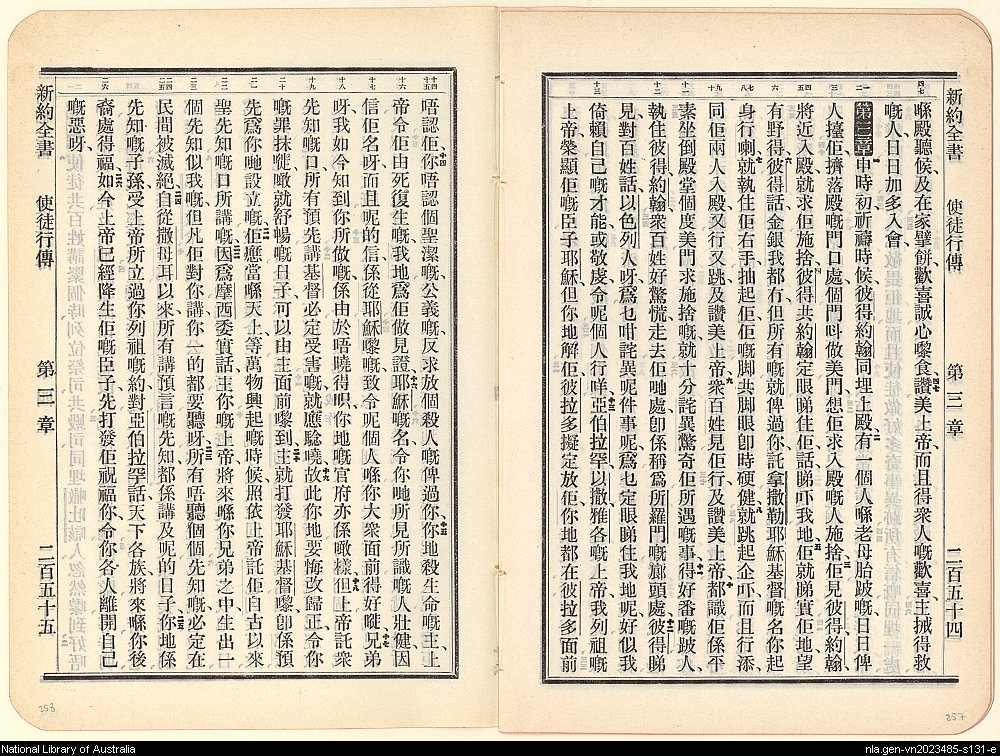 新約全書 使徒行傳 第三章 二百五十四
喺殿聽候、及在家擘餅、歡喜誠心嚟食、讚美上帝、而且得衆人嘅歡喜、主拯得救
嘅人、日日加多入會、
第三章 申時初祈禱時候、彼得約翰同埋上殿、有一個人喺老母胎跛嘅、日日俾
人擡佢擠落殿嘅門口、處個門呌做美門、想佢求入殿嘅人施捨、佢見彼得約翰
將近入殿、就求佢施捨、彼得共約翰定眼睇住佢話、睇吓我地、佢就睇實佢地、望
有野得、彼得話、金銀我都冇、但所有嘅就俾過你、託拿撒勒耶穌基督嘅名、你起
身行喇、就執住佢右手抽起佢、佢嘅脚共脚眼卽時硬健、就跳起企吓、而且行添、
同佢兩人入殿、又行又跳、及讚美上帝、衆百姓見佢行、及讚美上帝、都識佢係平
素坐倒殿堂個度美門求施捨嘅、就十分詫異驚奇佢所遇嘅事、得好番嘅跛人、
執住彼得約翰、衆百姓好驚慌、走去佢哋處、卽係稱爲所羅門嘅廊頭處、彼得睇
見、對百姓話、以色列人呀、爲乜咁詫異呢件事呢、爲乜定眼睇住我地呢、好似我
倚賴自己嘅才能、或敬虔、令呢個人行咩、亞伯拉罕以撒雅各嘅上帝、我列祖嘅
上帝、榮顯佢嘅臣子耶穌、但你地解佢、彼拉多擬定放佢、你地都在彼拉多面前
唔認佢、你唔認個聖潔嘅公義嘅、反求放個殺人嘅俾過你、你地殺生命嘅主、上
帝令佢由死復生嘅、我地爲佢做見證、耶穌嘅名、令你哋所見所識嘅人壯健、因
信佢名呀、而且呢的信、係從耶穌嚟嘅、致令呢個人喺你大衆面前得好嘥、兄弟
呀、我如今知到你所做嘅、係由於唔曉得唄、你地嘅官府亦係噉樣、但上帝託衆
先知嘅口、所有預先講基督必定受害嘅、就應騐嘵、故此你地要悔改歸正、令你
嘅罪抹嘥、噉就舒暢嘅日子、可以由主面前嚟到、主就打發耶穌基督嚟、卽係預
先爲你哋設立嘅、佢應當喺天上、等萬物興起嘅時候、照依上帝託佢自古以來
聖先知嘅口所講嘅、因爲摩西委實話、主你嘅上帝、將來喺你兄弟之中、生出一
個先知似我嘅、但凡佢對你講你一的都要聽呀、所有唔聽個個先知嘅、必定在
民間被滅絕、自從撒母耳以來、所有講預言嘅先知、都係講及呢的日子、你地係
先知嘅子孫、受上帝所立過你列祖嘅約、對亞伯拉罕話、天下各族、將來喺你後
裔處得福、如今上帝已經降生佢嘅臣子、先打發佢祝福你、令你各人離開自己
嘅惡呀、
新約全書 使徒行傳 第三章 二百五十五
253
257
National Library of Australia
nla.gen-vn2023485-s131-e